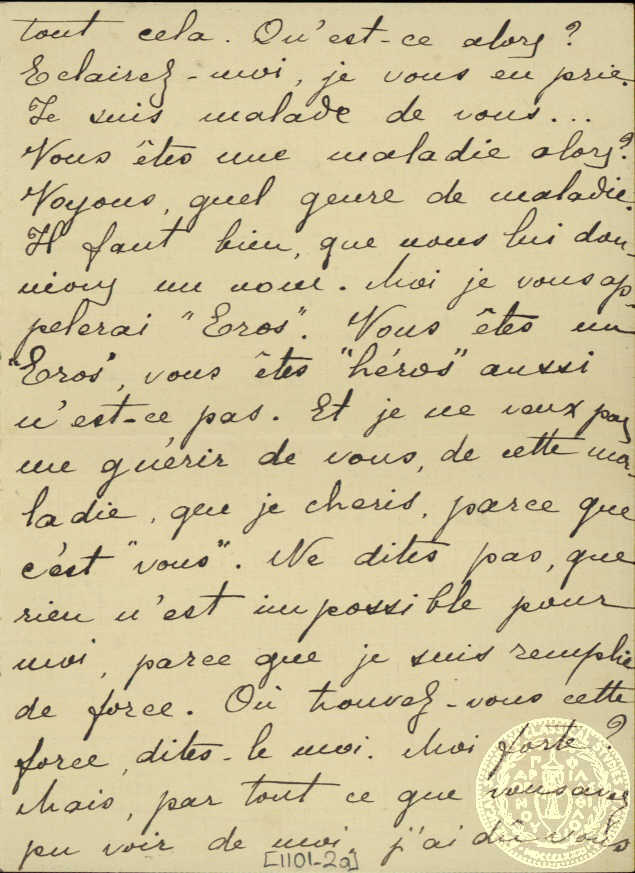 tout cela. Qu'est-ce alors?
Eclairez-moi, je vous en prie.
Je suis malade de vous...
Vous êtes une maladie alors?
Voyons, quel genre de maladie.
Il faut bien, que nous lui don-
nions un nom. Moi je vous ap-
pelerai "Eros". Vous êtes un
"Eros", vous êtes "héros" aussi
n'est-ce pas. Et je ne veux pas
me guérir de vous, de cette ma-
ladie, que je cheris, parce que
c'est "vous". Ne dites pas, que
rien n'est impossible pour
moi, parce que je suis remplie
de force. Où trouvez-vous cette
force, dites-le moi. Moi forte?
Mais, par tout ce que vous avez
pu voir de moi, j'ai dû vous
[1101-2a]